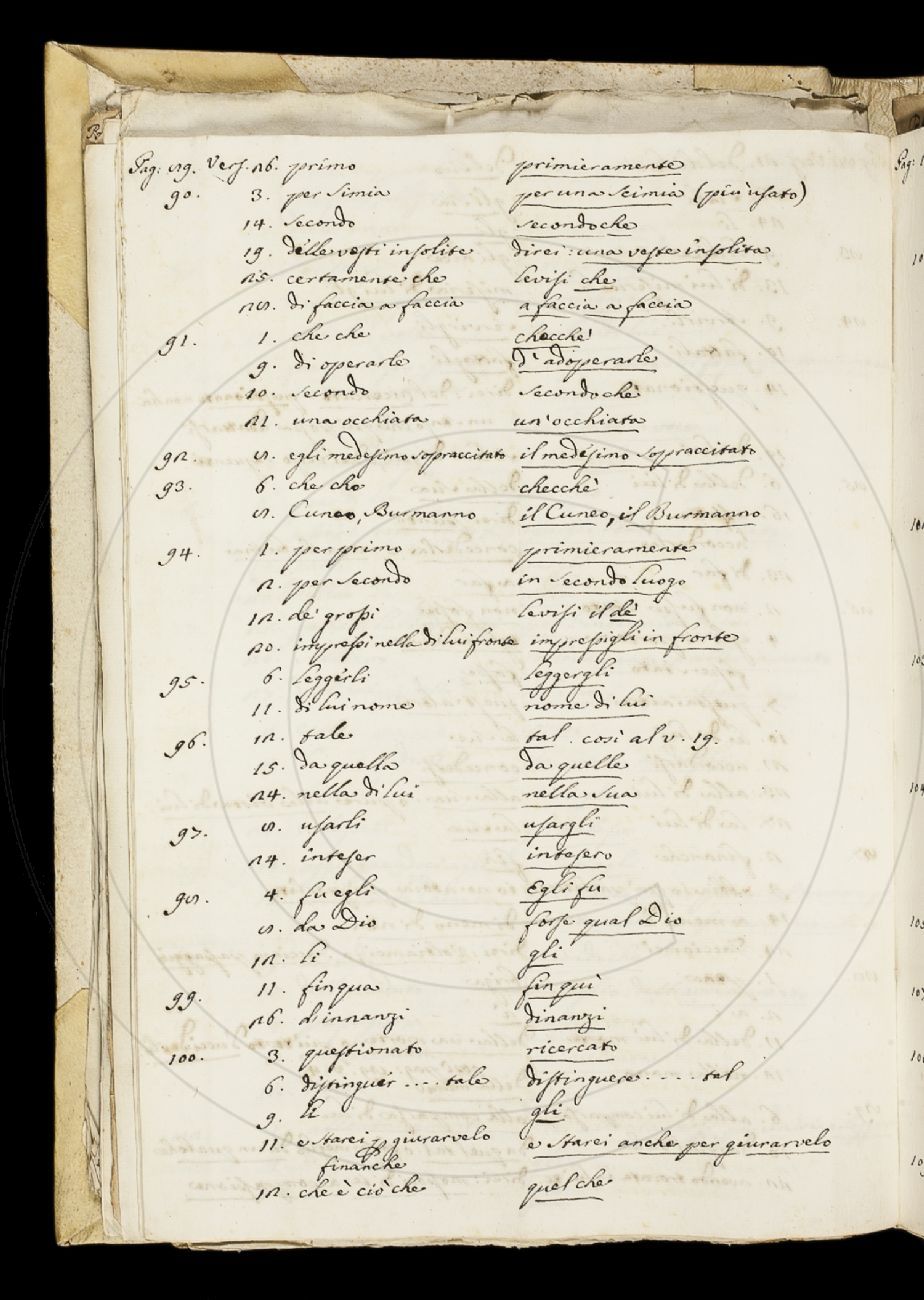 Pag: 89. Vers. 26. primo primieramente
90. 3. per Simia per una Scimia (più usato)
14. secondo secondo che
19. delle vesti insolite direi: una veste insolita
25. certamente che levisi che
28. di faccia a faccia a faccia a faccia
91. 1. che che checchè
9. di operarle d'adoperarle
10. secondo secondochè
21. una occhiata un'occhiata
92. 8. egli medesimo sopraccitato il medesimo sopraccitato
93. 6. che che checchè
8. Cuneo, Burmanno il Cuneo, il Burmanno
94. 1. per primo primieramente
2. per secondo in secondo luogo
12. de' grossi levisi il de'
20. impressi nella di lui fronte impressigli in fronte
95. 6. leggerli leggergli
11. di lui nome nome di lui
96. 12. tale tal. così al v. 19.
15. da quella da quelle
24. nella di lui nella sua
97. 8. usarli usargli
24. inteser intesero
98. 4. fu egli Egli fu
8. da Dio forse qual Dio
12. li gli
99. 11. finqua fin quì
26. dinnanzi dinanzi
100. 3. questionato ricercato
6. distinguer .... tale distinguere .... tal
9. li gli
11. e starei p giurarvelo e starei anche per giurarvelo
finanche
12. che è ciò che quel che
Pag: